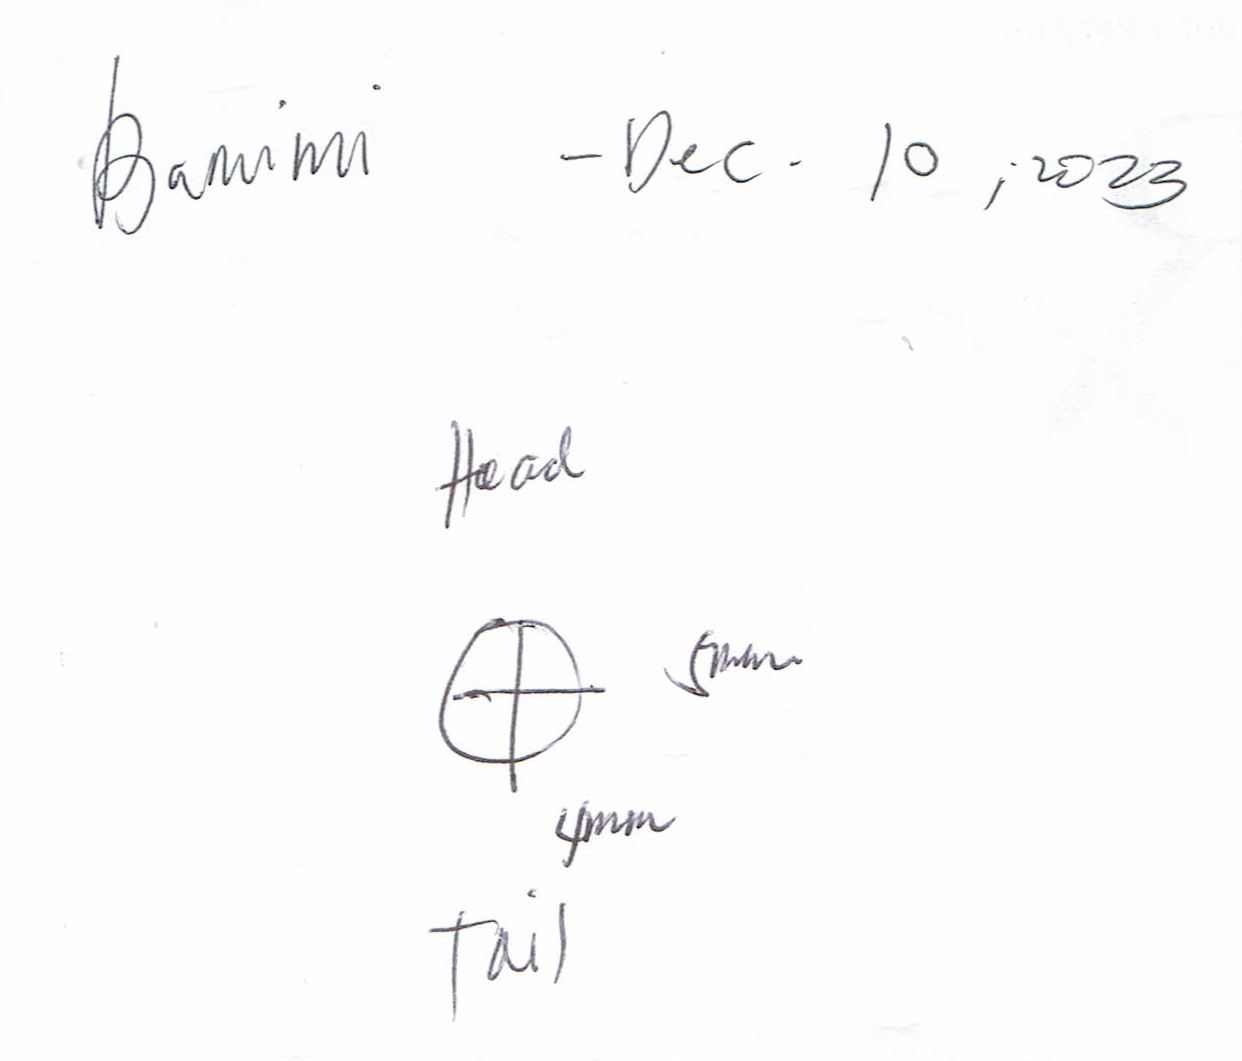 Bamimi - Dec. 10, 2023
Head
5mm
4mm
Tail